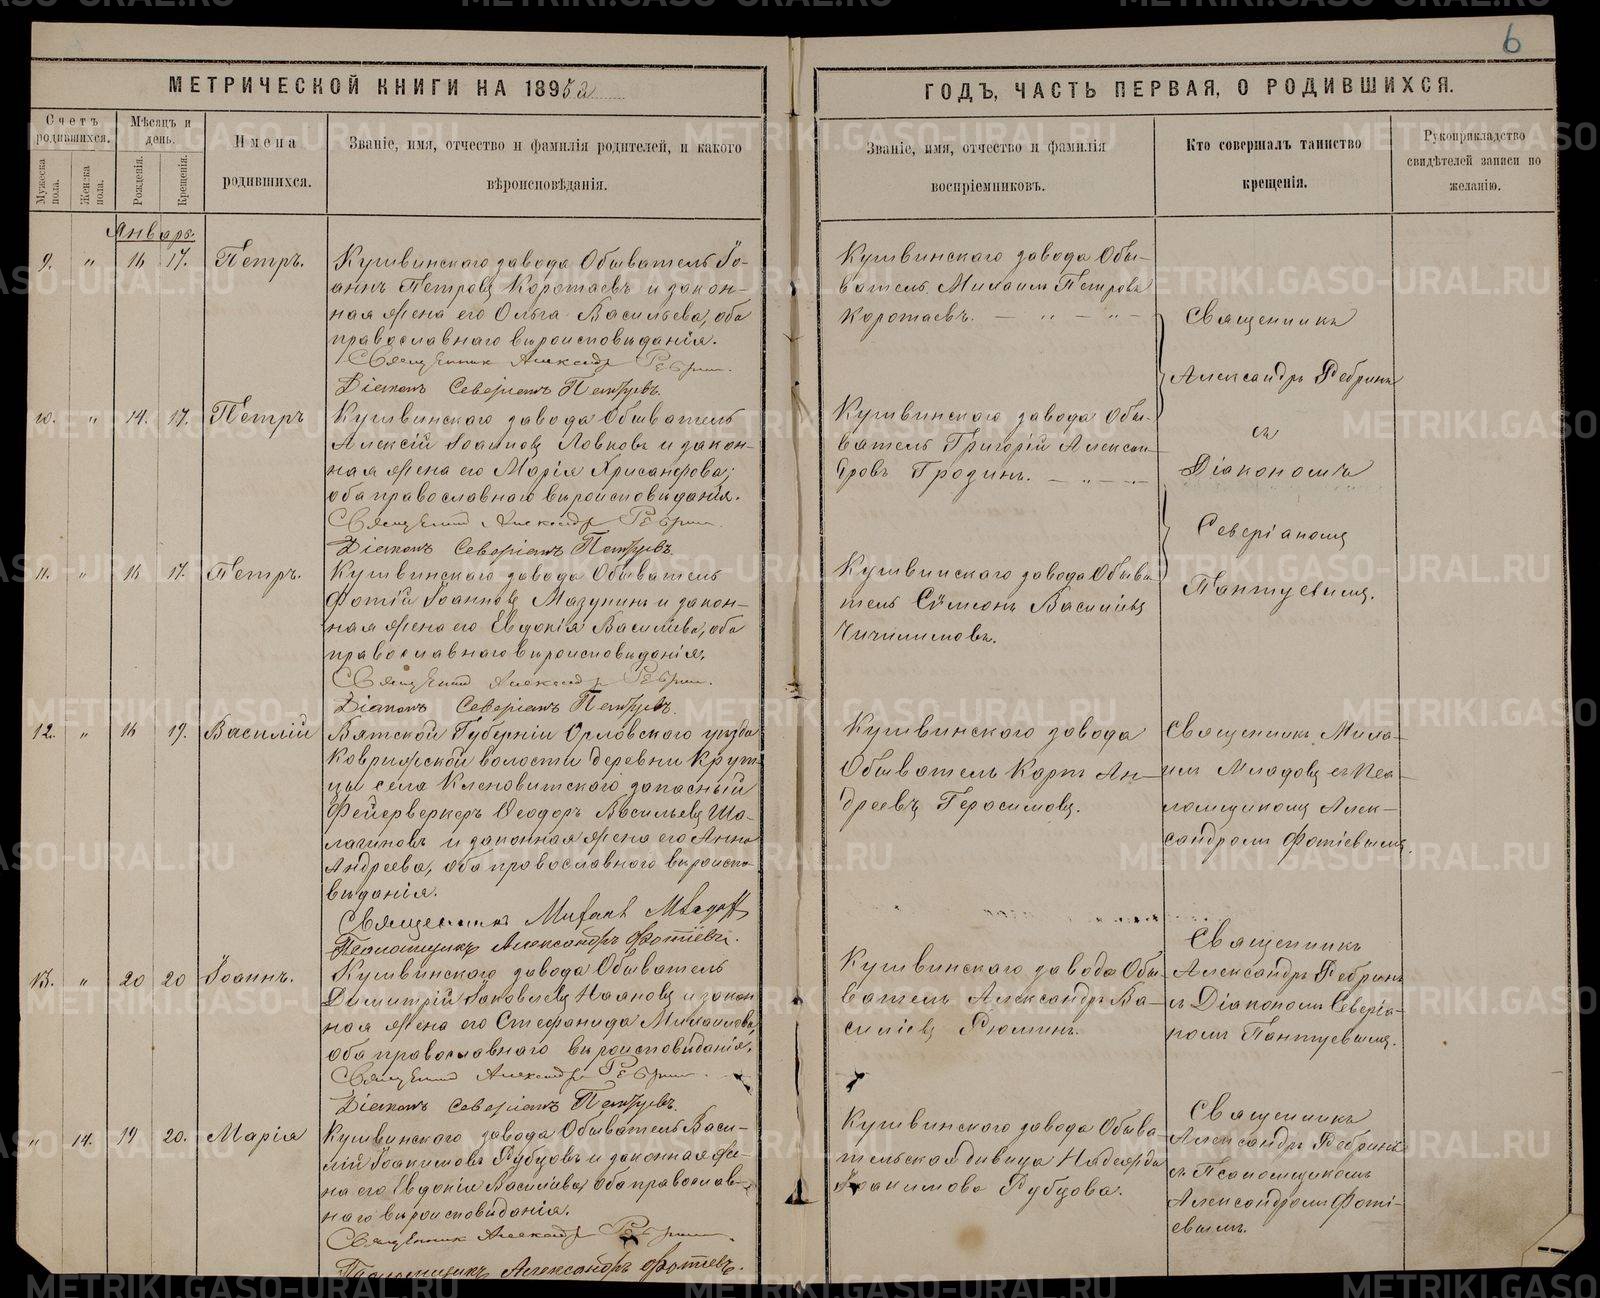 6
МЕТРИЧЕСКОЙ КНИГИ НА 1895й
ГОДЪ, ЧАСТЬ ПЕРВАЯ, О РОДИВШИХСЯ.
Счетъ родившихся.
Мужеска пола.
Женска пола.
Мѣсяцъ и день.
Рожденія.
Крещенія.
Имена родившихся.
Званіе, имя, отчество и фамилія родителей, и какого
вѣроисповѣданія.
Званіе, имя, отчество и фамилія
воспріемниковъ.
Кто совершалъ таинство
крещенія.
Рукоприкладство
свидѣтелей записи по
желанію.
Январь.
9. " 16 17. Петръ.
Кушвинскаго завода Обыватель Іо-
аннъ Петровъ Коротаевъ и закон-
ная жена его Ольга Васильева, оба
православнаго вѣроисповѣданія.
Священник Александр Ребрин.
Діаконъ Северіанъ Пантуевъ.
Кушвинскаго завода Обы-
ватель Михаилъ Петровъ
Коротаевъ. — " — " —
Священникъ
Александръ Ребринъ
съ
Діакономъ
Северіаномъ
Пантуевымъ.
10. " 14. 17. Петръ
Кушвинскаго завода Обыватель
Алексій Іоанновъ Ловковъ и закон-
ная жена его Марія Хрисанфова,
оба православнаго вѣроисповѣданія.
Священник Александр Ребрин.
Діаконъ Северіанъ Пантуевъ.
Кушвинскаго завода Обы-
ватель Григорій Алексан-
дровъ Гродинъ. — " — " —
11. " 16 17. Петръ.
Кушвинскаго завода Обыватель
Фотій Іоанновъ Мазунинъ и закон-
ная жена его Евдокія Васильева, оба
православнаго вѣроисповѣданія.
Священник Александр Ребрин.
Діаконъ Северіанъ Пантуевъ.
Кушвинскаго завода Обыва
тель Сѵмеонъ Васильевъ
12. " 16 19. Василій
Вятской Губерніи Орловскаго уѣзда
волости деревни Крут-
цы села Кленовитскаго запасный
Фейерверкеръ Ѳеодоръ Васильевъ Ша-
лагиновъ и законная жена его Анна
Андреева, оба православнаго вѣроиспо-
вѣданія.
Священникъ
Псаломщикъ Александръ Фотіевъ.
Кушвинскаго завода
Обыватель Карпъ Ан-
дреевъ Герасимовъ.
Священникъ Миха-
илъ Младовъ съ Пса-
ломщикомъ Алек-
сандромъ Фотіевымъ.
13. " 20 20 Іоаннъ.
Кушвинскаго завода Обыватель
Димитрій Іаковлевъ и закон
ная жена его Стефанида Михаилова,
оба православнаго вѣроисповѣданія.
Священник Александр Ребрин.
Діаконъ Северіанъ Пантуевъ.
Кушвинскаго завода Обы-
ватель Александръ Ва-
сильевъ Рюминъ.
Священникъ
Александръ Ребринъ
съ Діакономъ Северіа-
номъ Пантуевымъ.
" 14. 19 20. Марія
Кушвинскаго завода Обыватель Васи-
лій Іоакимовъ Рубцовъ и законная же-
на его Евдокія Васильева, оба православ-
наго вѣроисповѣданія.
Священник Александр Ребрин.
Псаломщикъ Александръ Фотіевъ.
Кушвинскаго завода Обыва-
тельская дѣвица Надежда
Іоакимова Рубцова.
Священникъ
Александръ Ребринъ
съ Псаломщикомъ
Александромъ Фоті-
евымъ.
METRIKI.GASO-URAL.RU